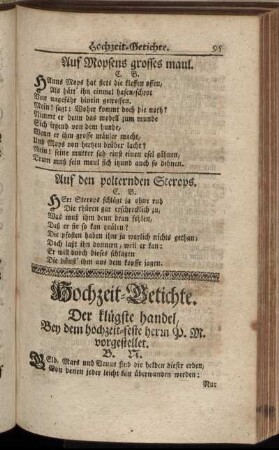 Hochzeit-Getichte. 95
Auf Mopsens grosses maul.
C. B.
HAnns Mops hat stets die kleffen offen,
Als hätt' ihn einmal hasen-schrot
Von ungefähr hinein getroffen.
Mein! sagt: Woher kommt doch die noth?
Nimmt er dann das modell zum munde
Sich irgend von dem hunde,
Wenn er ihm grosse mäuler macht,
Und Mops von hertzen drüber lacht?
Nein: seine mutter sah einst einen esel gähnen,
Drum muß sein maul sich itzund auch so dehnen.
Auf den polternden Sterops.
C. B.
HErr Sterops schlägt ja ohne ruh
Die thüren gar erschrecklich zu,
Was muß ihm denn dran fehlen,
Daß er sie so kan quälen?
Die pfosten haben ihm ja warlich nichts gethan;
Doch laßt ihn donnern, weil er kan:
Er will durch dieses schlagen
Die dünst' ihm aus dem kopffe jagen.
Hochzeit-Getichte.
Der klügste handel,
Bey dem hochzeit-feste herrn P. M.
vorgestellet.
B. N.
GEld, Mars und Venus sind die helden dieser erden,
Von denen jeder leicht kan überwunden werden:
Nur